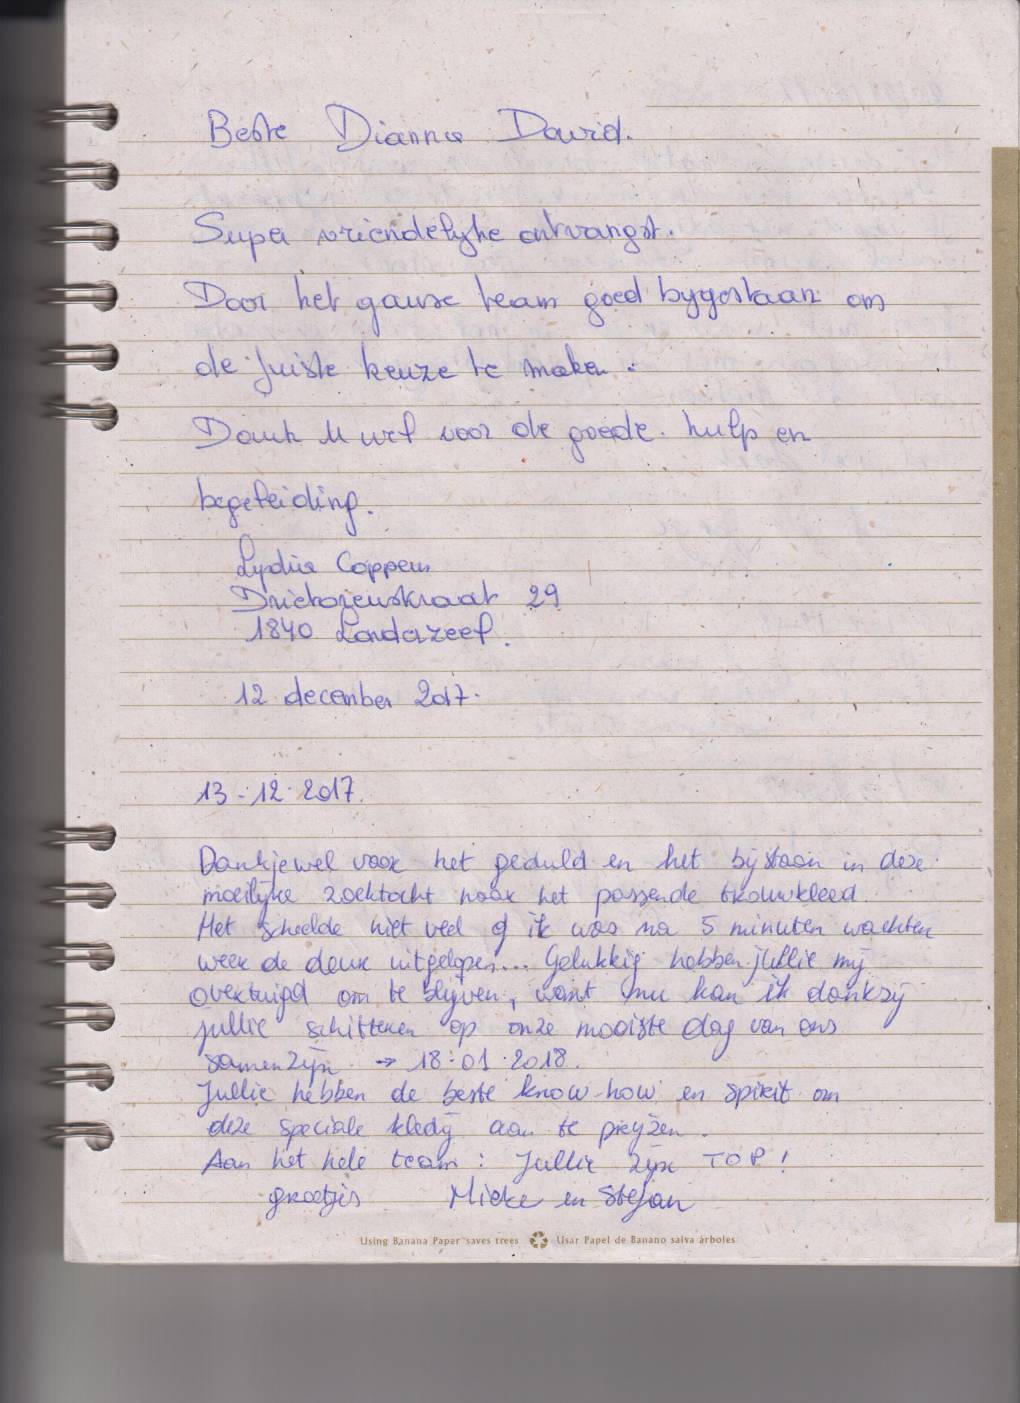 Beste Dianna David.
Super vriendelyke ontvangst.
Door het ganse team goed bygestaan om
de juiste keuze te maken.
Dank U wel voor de goede hulp en
begeleiding.
Lydia Coppens
29
1840 Londerzeel.
12 december 2017.
13-12-2017.
Dankjewel voor het geduld en het bijstaan in deze
moeilijke zoektocht naar het passende trouwkleed.
Het scheelde niet veel of ik was na 5 minuten wachten
weer de deur uitgelopen... Gelukkig hebben jullie mij
overtuigd om te blijven, want nu kan ik dankzij
jullie schitteren op onze mooiste dag van ons
samenzijn → 18-01-2018.
Jullie hebben de beste know-how en spirit om
deze speciale kledij aan te prijzen.
Aan het hele team: Jullie zijn TOP!
groetjes Mieke en Stefan
Using Banana Paper saves trees Usar Papel de Banano salva árboles